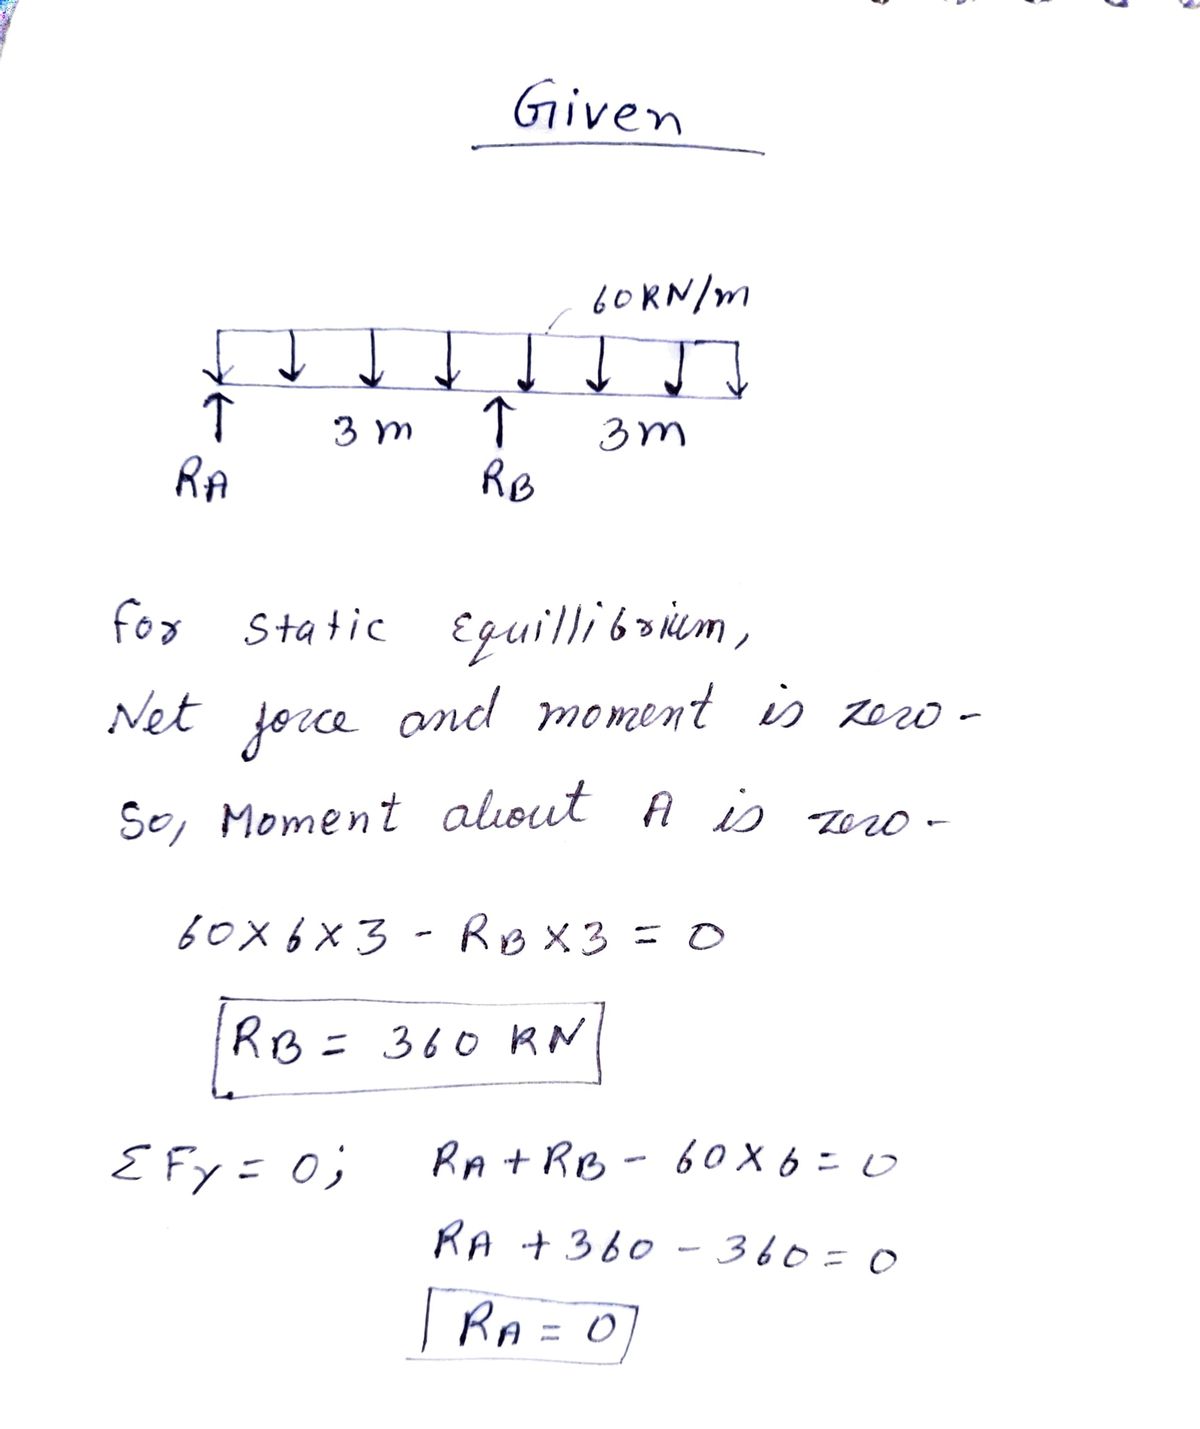 Given
60KN/m
3m 3m
RA RB
for static Equillibrium,
Net force and moment is zero-
So, Moment about A is zero-
60×6×3 - RB×3 = 0
RB = 360 KN
ΣFy = 0; RA + RB - 60×6 = 0
RA + 360 - 360 = 0
RA = 0